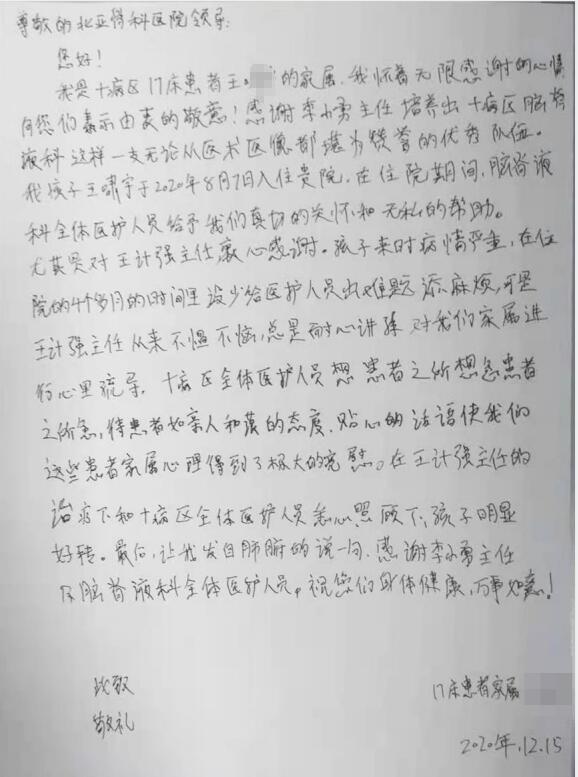 尊敬的北亚骨科医院领导:
您好!
我是十病区17床患者王 的家属,我怀着无限感谢的心情
向您们表示由衷的敬意!感谢李小勇主任培养出十病区脑脊
液科这样一支无论从医术医德都堪为赞誉的优秀队伍。
我孩子王啸宇于2020年8月7日入住贵院,在住院期间,脑脊液
科全体医护人员给予我们真切的关怀和无私的帮助。
尤其是对王计强主任衷心感谢。孩子来时病情严重,在住
院的4个多月的时间里没少给医护人员出难题添麻烦,可是
王计强主任从来不愠不恼,总是耐心讲解对我们家属进
行心里疏导,十病区全体医护人员想患者之所想急患者
之所急,待患者如亲人和蔼的态度,贴心的话语使我们
这些患者家属心理得到了极大的宽慰。在王计强主任的
治疗下和十病区全体医护人员悉心照顾下,孩子明显
好转。最后,让我发自肺腑的说一句,感谢李小勇主任
及脑脊液科全体医护人员,祝您们身体健康,万事如意!
此致
17床患者家属
敬礼
2020年.12.15